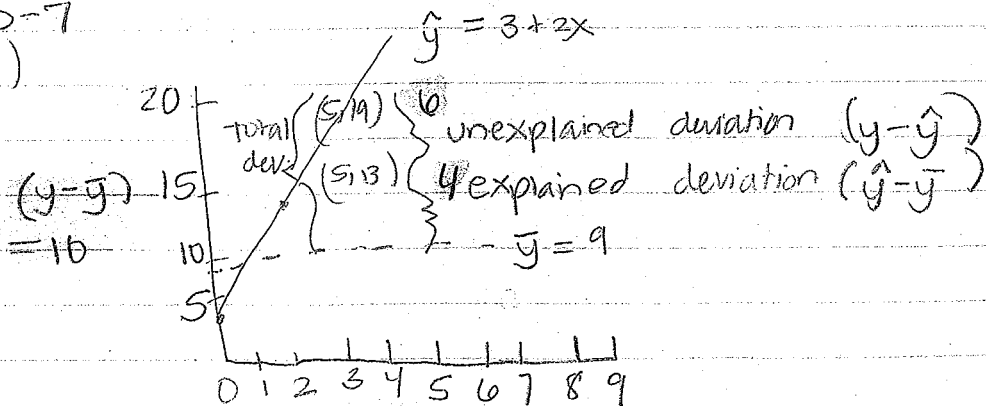 -7
)
ŷ = 3 + 2x
20
Total dev.
(5,19)
6 unexplained deviation (y-ŷ)
(5,13)
4 explained deviation (ŷ-ȳ)
(y-ȳ) = 10
15
10
ȳ = 9
5
0 1 2 3 4 5 6 7 8 9